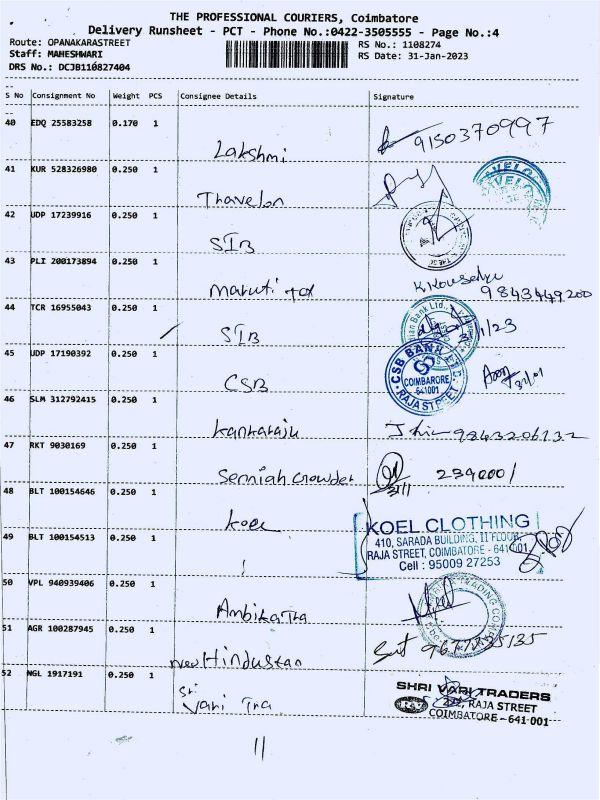 THE PROFESSIONAL COURIERS, Coimbatore
Delivery Runsheet - PCT - Phone No.:0422-3505555 - Page No.:4
Route: OPANAKARASTREET
RS No.: 1108274
Staff: MAHESHWARI
RS Date: 31-Jan-2023
DRS No.: DCJB110827404
S No Consignment No Weight PCS Consignee Details Signature
40 EDQ 25583258 0.170 1
Lakshmi 9150370997
41 KUR 528326980 0.250 1
Thavelon
42 UDP 17239916 0.250 1
SIB
43 PLI 200173894 0.250 1
Maruti tex K.Kousalya
9843449200
44 TCR 16955043 0.250 1
SIB
45 UDP 17190392 0.250 1
CSB CSB BANK LTD
COIMBATORE
641001
RAJA STREET
46 SLM 312792415 0.250 1
Kankaraju 9843206132
47 RKT 9030169 0.250 1
Senniah Chowder
48 BLT 100154646 0.250 1
Koel KOEL CLOTHING
410, SARADA BUILDING, II FLOOR,
49 BLT 100154513 0.250 1
RAJA STREET, COIMBATORE - 641 001.
Cell : 95009 27253
50 VPL 940939406 0.250 1
Ambika Tra
51 AGR 100287945 0.250 1
New Hindustan
52 NGL 1917191 0.250 1
Sri
Vari Tra
SHRI VARI TRADERS
RAJA STREET
COIMBATORE - 641 001
11